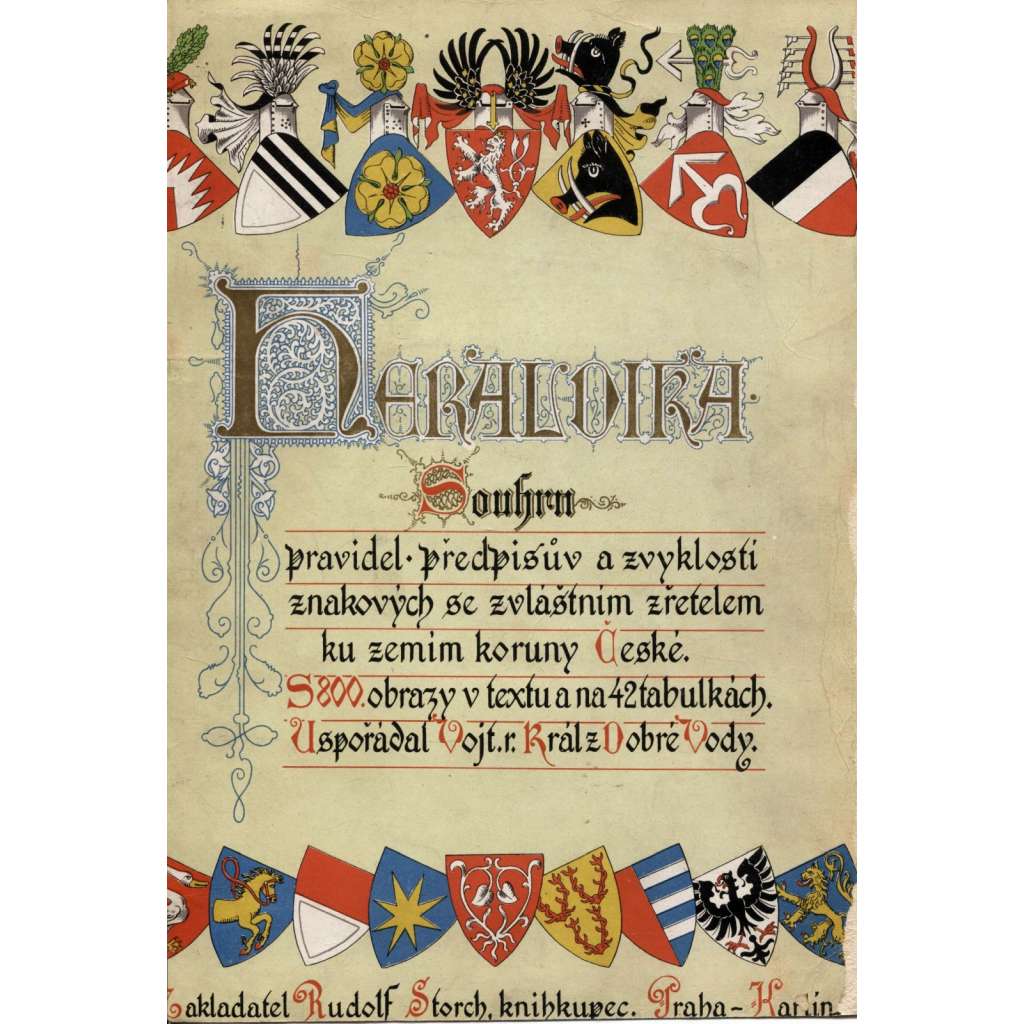 HERALDIKA.
Souhrn
pravidel · předpisův a zvyklostí
znakových se zvláštním zřetelem
ku zemím koruny České.
S 800. obrazy v textu a na 42 tabulkách.
Uspořádal Vojt. r. Král z Dobré Vody.
Nakladatel Rudolf Storch, knihkupec. Praha - Karlín.